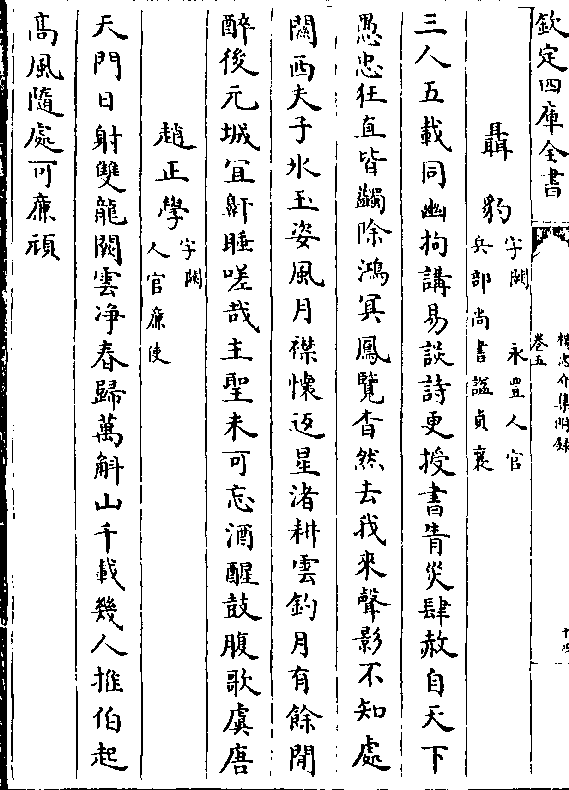 欽定四庫全書
楊忠介集附錄
卷五
十四
聶豹
字闕　永豐人官
兵部尚書諡貞襄
三人五載同幽拘講易談詩更授書眚災肆赦自天下
愚忠狂直皆蠲除鴻冥鳳覽杳然去我來聲影不知處
關西夫子氷玉姿風月襟懷返星渚耕雲釣月有餘閒
醉後元城宜鼾睡嗟哉主聖未可忘酒醒鼓腹歌虞唐
趙正學
字闕
人官廉使
天門日射雙龍闕雲净春歸萬斛山千載幾人推伯起
高風隨處可廉頑